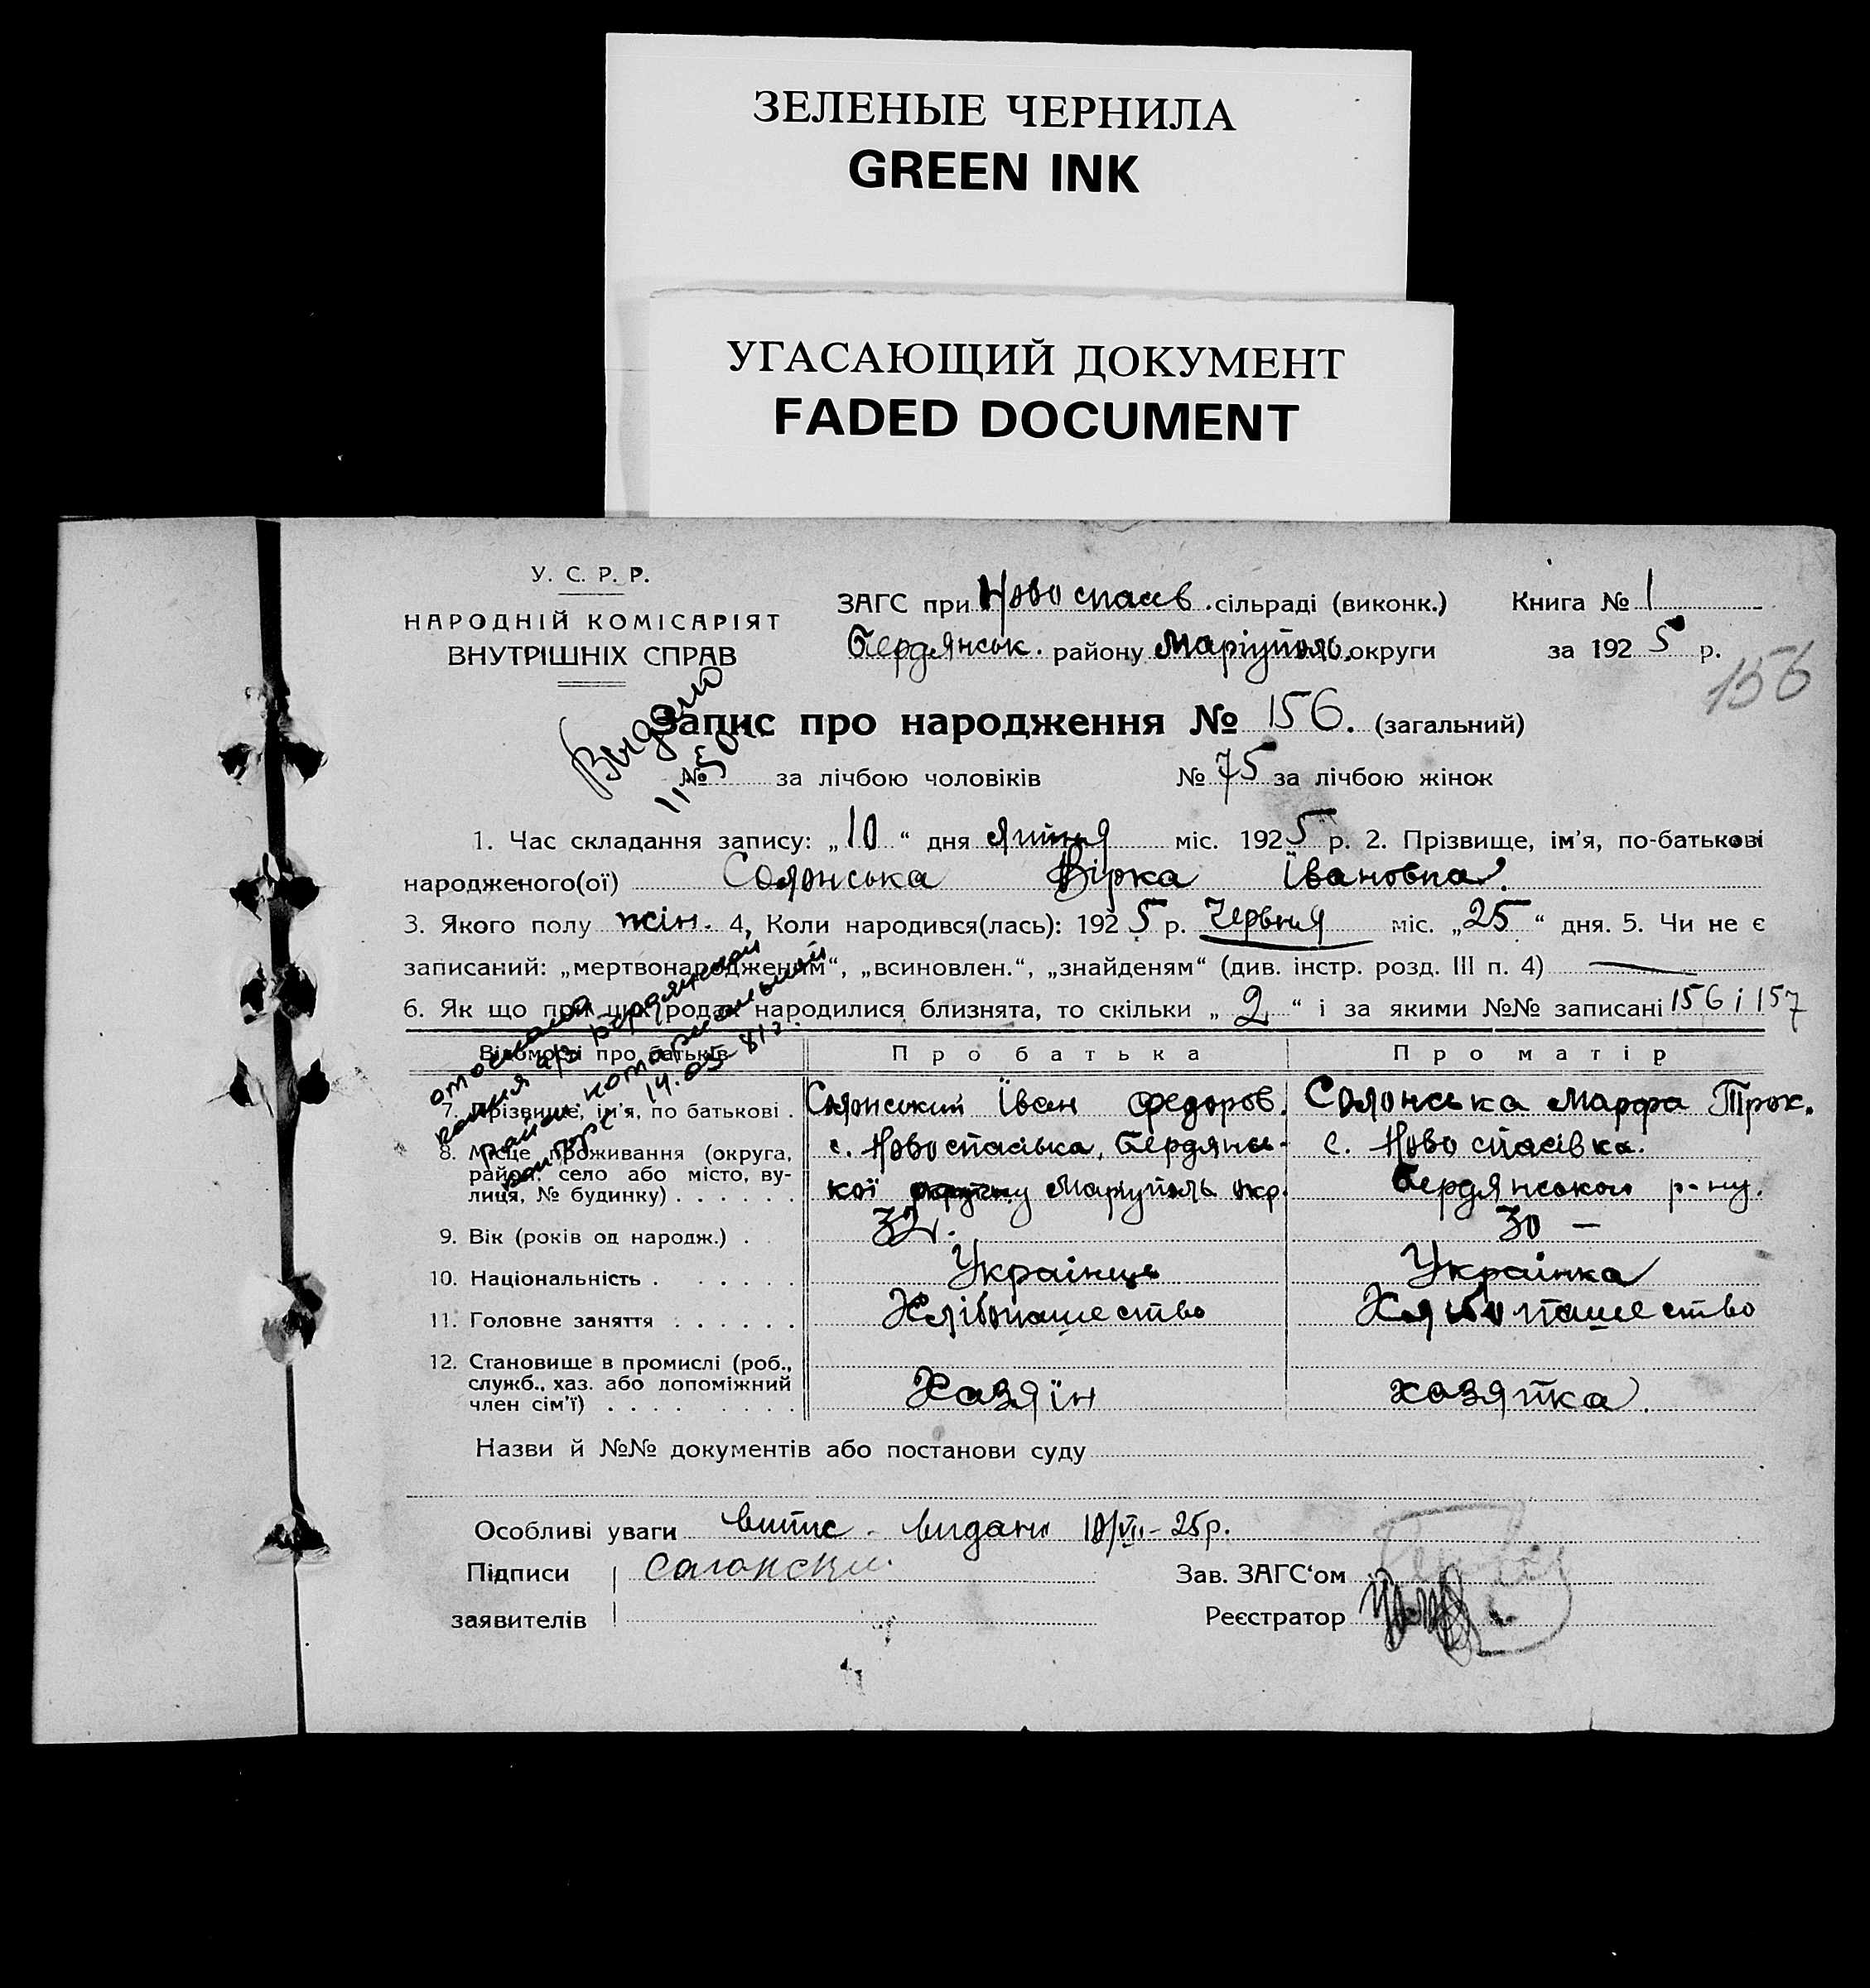 ЗЕЛЕНЫЕ ЧЕРНИЛА
GREEN INK
УГАСАЮЩИЙ ДОКУМЕНТ
FADED DOCUMENT
У. С. Р. Р.
НАРОДНІЙ КОМІСАРІЯТ
ВНУТРІШНІХ СПРАВ
ЗАГС при Новоспасів. сільраді (виконк.) Книга № 1
Бердянськ. району Маріуполь. округи за 1925 р.
156
Запис про народження № 156. (загальний)
Выдано
№ за лічбою чоловіків № 75 за лічбою жінок
1. Час складання запису: „10“ дня липня міс. 1925 р. 2. Прізвище, ім'я, по-батькові
народженого(ої) Солонська Вірка Івановна.
3. Якого полу жін. 4, Коли народився(лась): 1925 р. Червня міс. „25“ дня. 5. Чи не є
записаний: „мертвонародженям“, „всиновлен.“, „знайденям“ (див. інстр. розд. III п. 4)
6. Як що при цих родах народилися близнята, то скільки „2“ і за якими №№ записані 156 і 157
отослана
копия а/з Бердянской
район. нотариальной
конторе 14.05-81г.
Відомості про батьків Про батька Про матір
7. Прізвище, ім'я, по батькові . Солонський Іван Федоров. Солонська Марфа Трох.
8. Місце проживання (округа, район, село або місто, ву-
лиця, № будинку) . . . . . .
с. Новоспаська, Бердянсь-
кої Маріуполь окр.
с. Новоспасівка.
Бердянського р-ну.
9. Вік (років од народж.) . 32. 30 —
10. Національність . . . . . Українць Українка
11. Головне заняття . . . . . . Хлібопашество Хлібопашество
12. Становище в промислі (роб.,
служб., хаз. або допоміжний
член сім'ї) . . . . . . . . Хазяїн хазяйка.
Назви й №№ документів або постанови суду
Особливі уваги Витис. видани 10/VII-25р.
Підписи Солонский Зав. ЗАГС'ом
заявителів Реєстратор